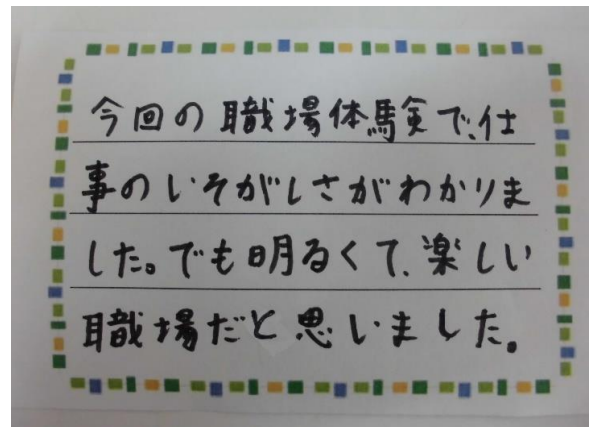 今回の職場体験で、仕
事のいそがしさがわかりま
した。でも明るくて、楽しい
職場だと思いました。